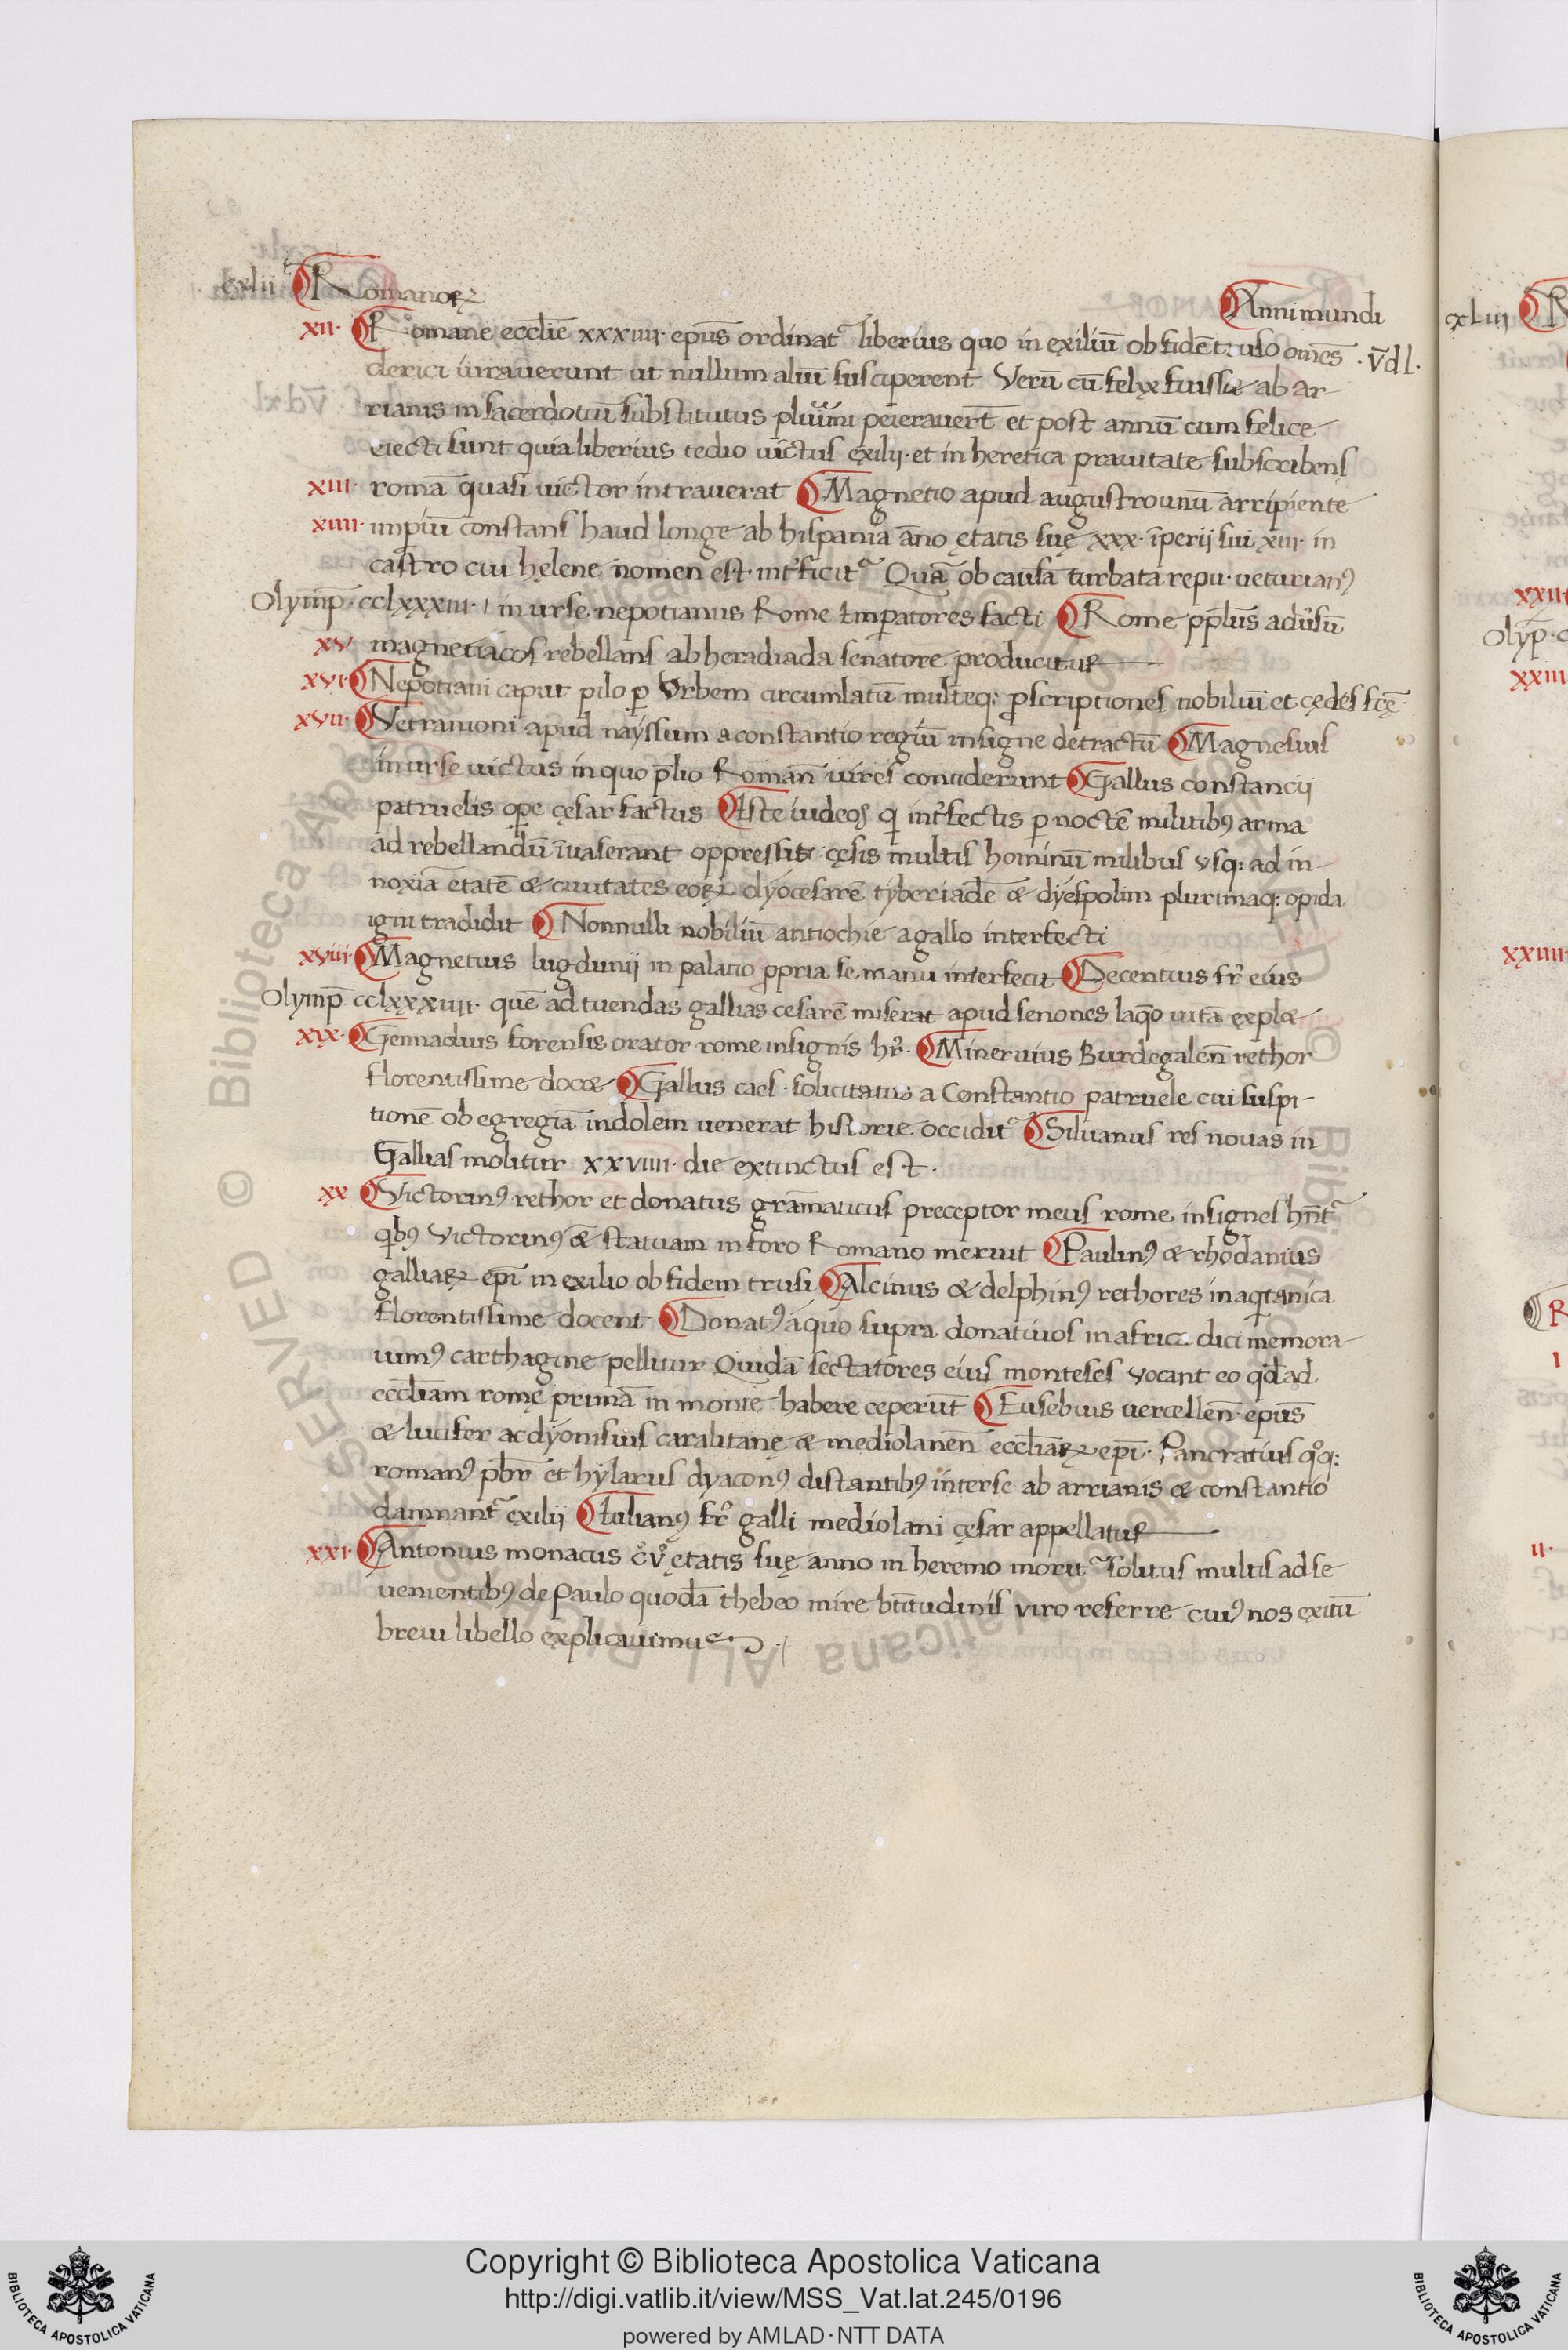 cxlii Romanoꝝ Anni mundi
xii· Romane eccłie xxxiiii· ep̄us ordinat᷑ liberius quo in exiliū ob fidē truso om̄es ·v̄dl·
clerici iuraverunt ut nullum aliū susciperent Verū cū felyx fuisset ab ar-
rianis in sacerdotiū substitutus plurimi peieravert̄ et post annū cum felice
eiecti sunt quia liberius tedio victus exilij· et in heretica pravitate subscribens
xiii· romā quasi victor intraverat Magnetio apud augustrounū arripiente
xiiii· impiū constans haud longe ab hispania āno ętatis suę xxx· īperij sui xiii· in
castro cui hęlene nomen est· int̉ficit᷑ Quā ob causā turbata repu· veturian⁹
Olymp̄· cclxxxiii· in urse nepotianus Rome Imꝑatores facti Rome pp̄lus adv̉sū
xv magnetiacos rebellans ab heradiada senatore producitur
xvi· Nepotiani caput pilo ꝑ Urbem circumlatū multeq: ꝓscriptiones nobiliū et cędes fcę̄·
xvii· Vetranioni apud nayssum a constantio regiū insigne detractū Magnesius
in urse victus in quo p̄lio Roman̄ vires conciderunt Gallus constancij
patruelis oꝑe cęsar factus Iste iudeos qi int̉fectis ꝑ noctē militib⁹ arma
ad rebellandū īvaserant oppressit cęsis multis hominū milibus usq: ad in-
noxiā etatē & civitates eoꝝ dyocesarē tyberiadē & dyespolim plurimaq: opida
igni tradidit Nonnulli nobiliū antiochie a gallo interfecti
xviii· Magnetius lugdunij in palatio ꝓpria se manu interfecit Decentius fr̄ eius
Olymp̄ cclxxxiiii· quē ad tuendas gallias cesarē miserat apud senones laq̄o vitā explet
xix· Gennadius forensis orator rome insignis hr̄· Minervius Burdegalen̄ rethor
florentissime docet Gallus caes· solicitatus a Constantio patruele cui suspi-
tionē ob egregiā indolem venerat historie occidit᷑ Silvanus res novas in
Gallias molitur xxviiii· die extinctus est·
xx Victorin⁹ rethor et donatus grāmaticus preceptor meus rome insignes hn̄t᷑
qib⁹ Victorin⁹ & statuam in foro Romano meruit Paulin⁹ & rhodanius
galliaꝝ ep̄i in exilio ob fidem trusi Alcinus & delphin⁹ rethores in aqitanica
florentissime docent Donat⁹ a quo supra donativos in africa dici memora-
vim⁹ carthagine pellitur Quidā sectatores eius monteses vocant eo qd̄ ad
eccłiam romę primā in monte habere ceperūt Eusebius vercellen̄ ep̄us
& lucifer ac dyonisius caralitanę & mediolanen̄ eccłiaꝝ ep̄i· Pancratius qoq:
roman⁹ pb̄r et hylarus dyacon⁹ distantib⁹ inter se ab arrianis & constantio
damnant᷑ exilij Iulian⁹ fr̄ galli mediolani cęsar appellatur
xxi· Antonius monacus cv ętatis suę anno in heremo morit᷑ solutus multis ad se
venientib⁹ de Paulo quodā thebeo mire bt̄itudinis viro referre cui⁹ nos exitū
brevi libello explicavimus·
cxliii
xxii
Olyp̄·
xxiii
xxiiii·
i
ii·
Copyright © Biblioteca Apostolica Vaticana
http://digi.vatlib.it/view/MSS_Vat.lat.245/0196
powered by AMLAD·NTT DATA
BIBLIOTECA APOSTOLICA VATICANA
BIBLIOTECA APOSTOLICA VATICANA